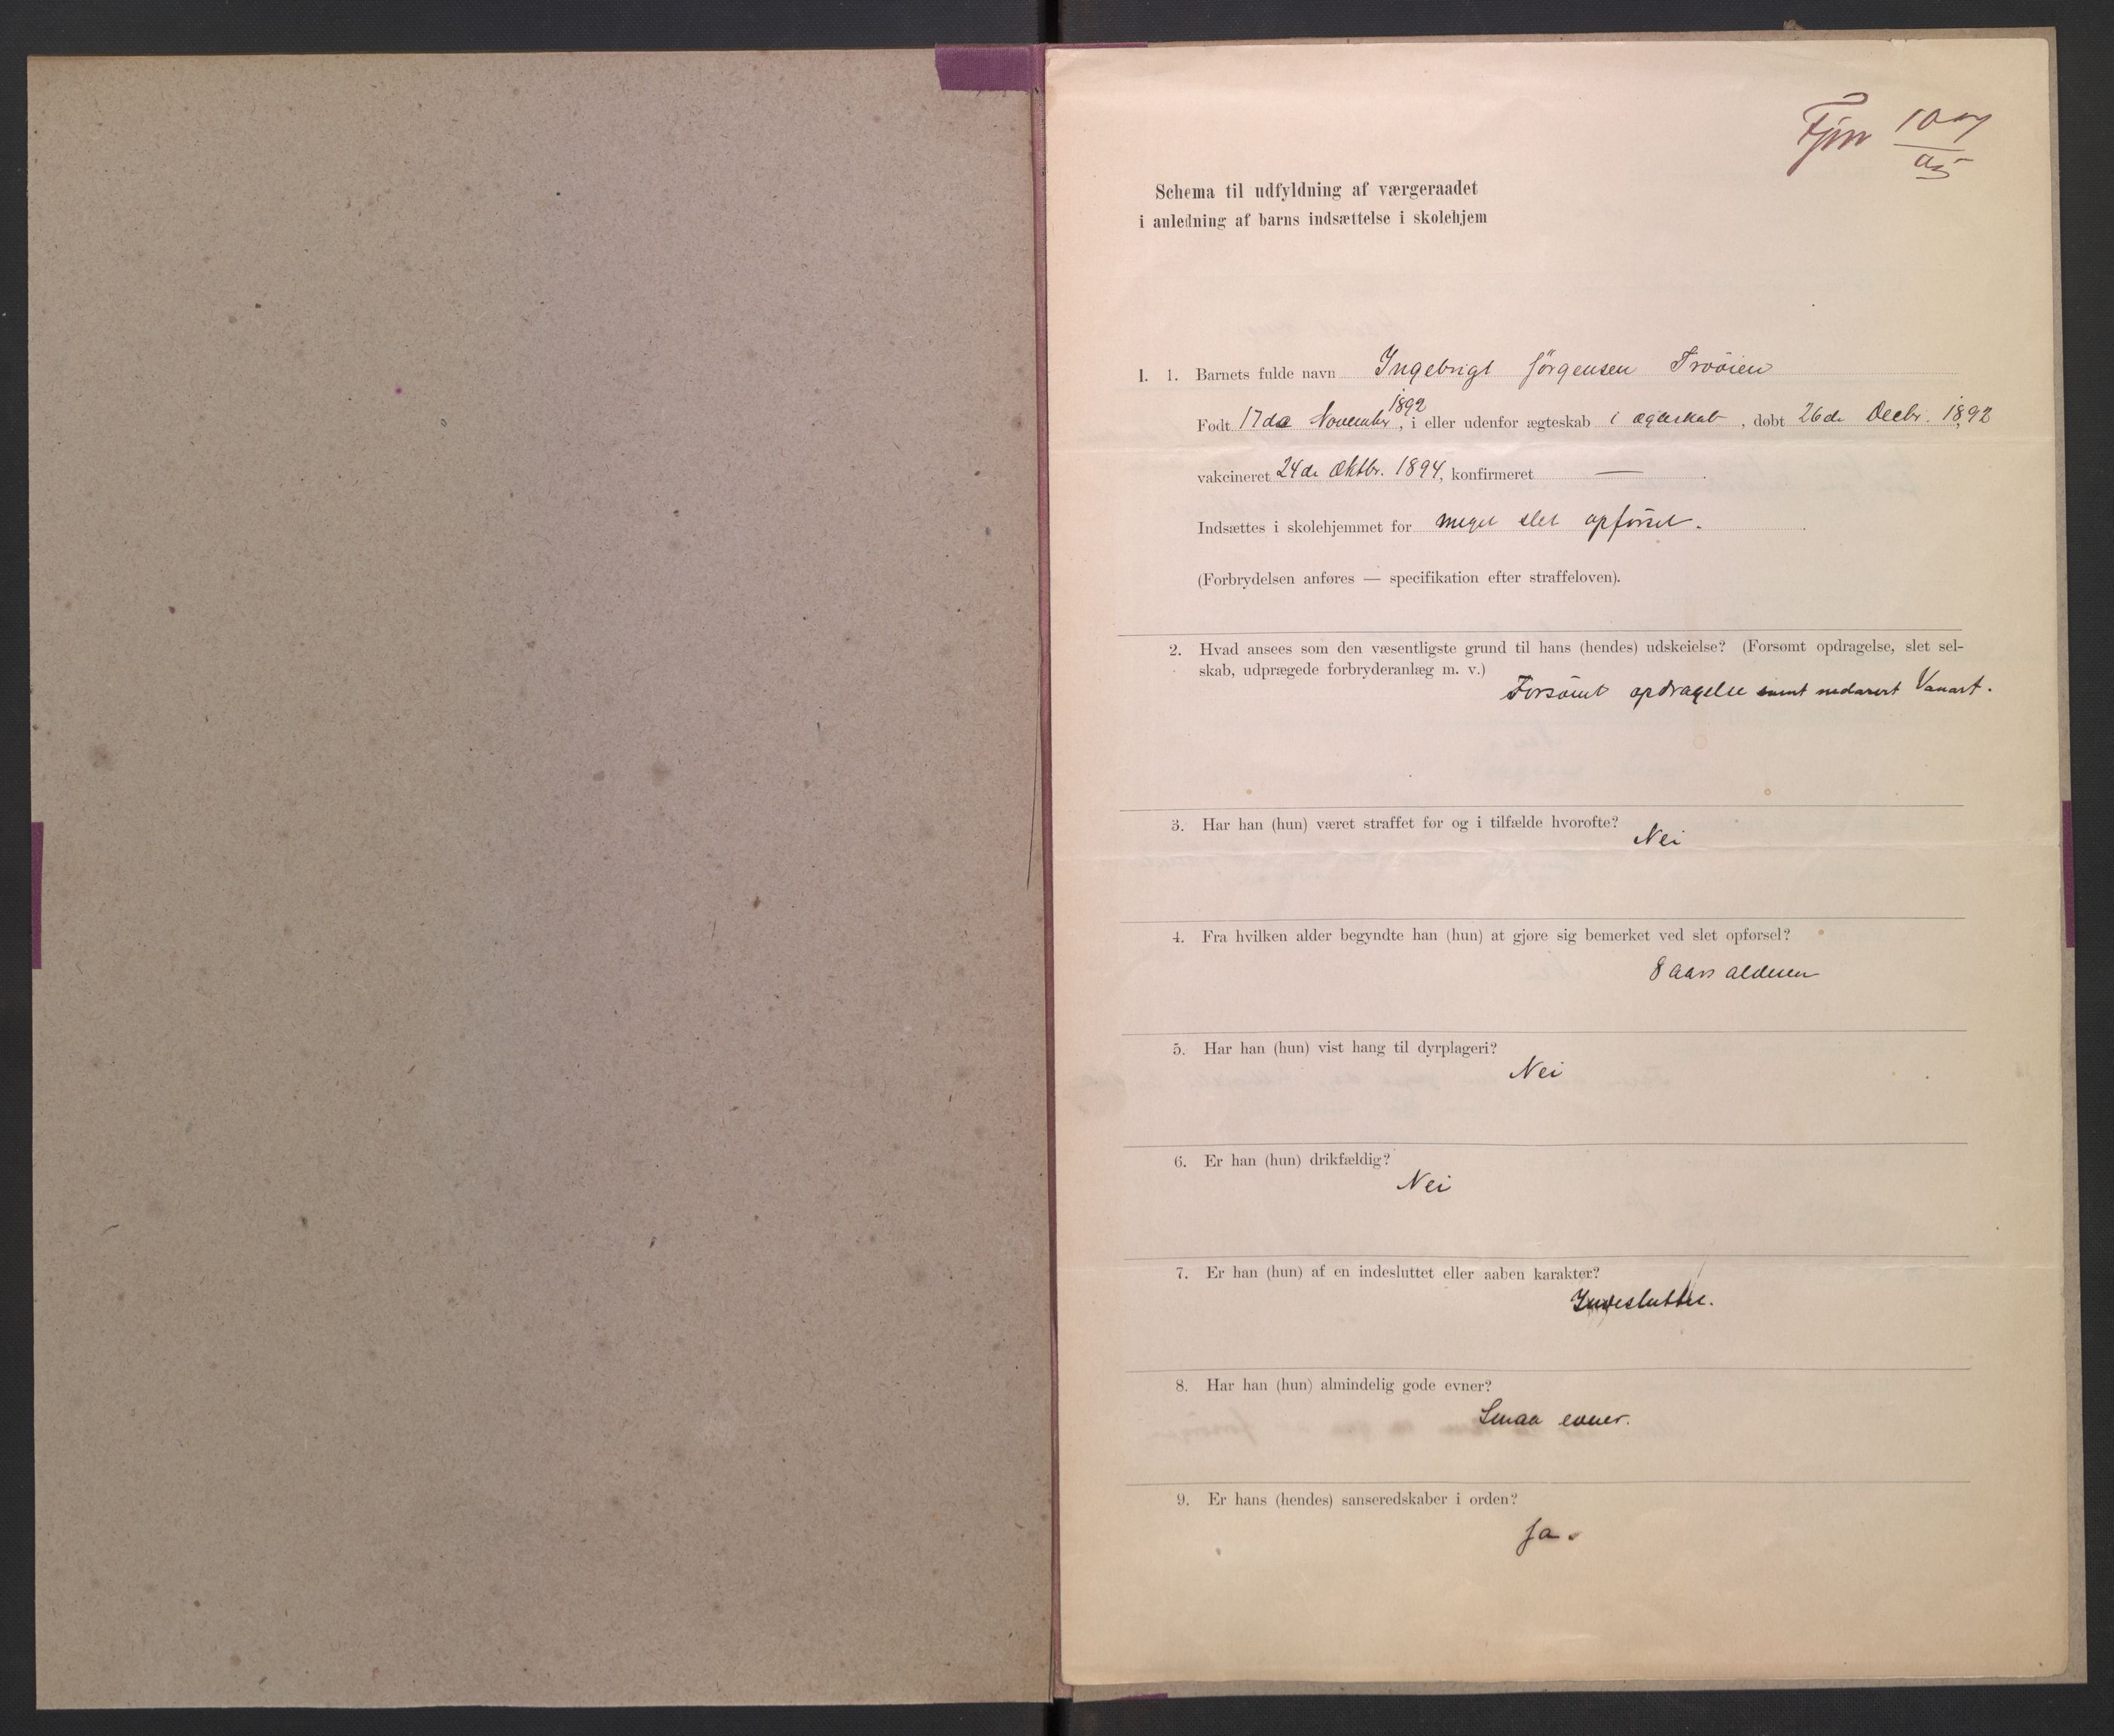 Schema til udfyldning af værgeraadet
i anledning af barns indsættelse i skolehjem
I. 1. Barnets fulde navn Ingebrigt Jörgensen Trööien
Født 17de November 1892, i eller udenfor ægteskab i ægteskab, døbt 26de Decbr. 1892
vakcineret 24de Oktbr. 1894, konfirmeret —
Indsættes i skolehjemmet for meget slet opförsel.
(Forbrydelsen anføres — specifikation efter straffeloven).
2. Hvad ansees som den væsentligste grund til hans (hendes) udskeielse? (Forsømt opdragelse, slet sel-
skab, udprægede forbryderanlæg m. v.)
Forsömt opdragelse samt nedarvet Vanart.
3. Har han (hun) været straffet før og i tilfælde hvorofte?
Nei
4. Fra hvilken alder begyndte han (hun) at gjøre sig bemerket ved slet opførsel?
8 aars alderen
5. Har han (hun) vist hang til dyrplageri?
Nei
6. Er han (hun) drikfældig?
Nei
7. Er han (hun) af en indesluttet eller aaben karakter?
Indesluttet.
8. Har han (hun) almindelig gode evner?
Smaa evner.
9. Er hans (hendes) sanseredskaber i orden?
Ja.